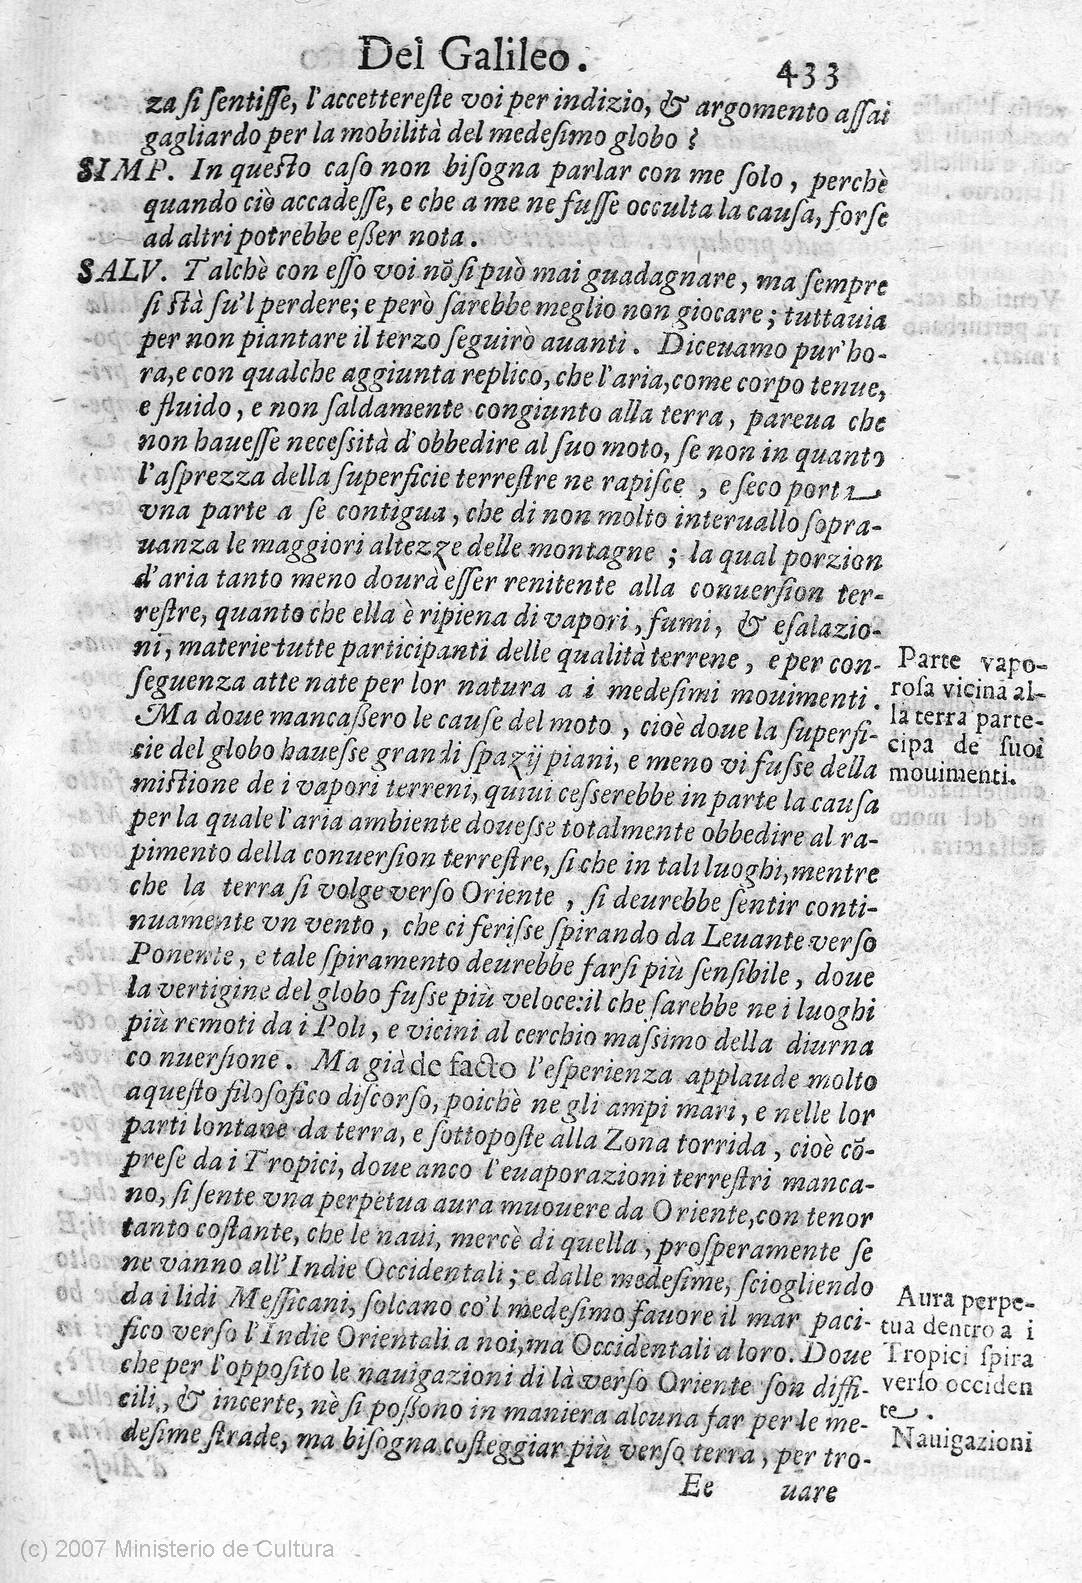 Del Galileo.
433
za si sentisse, l'accettereste voi per indizio, & argomento assai
gagliardo per la mobilità del medesimo globo?
SIMP. In questo caso non bisogna parlar con me solo, perchè
quando ciò accadesse, e che a me ne fusse occulta la causa, forse
ad altri potrebbe eßer nota.
SALV. Talchè con esso voi nõ si può mai guadagnare, ma sempre
si stà su'l perdere; e però sarebbe meglio non giocare; tuttauia
per non piantare il terzo seguirò auanti. Diceuamo pur'ho-
ra, e con qualche aggiunta replico, che l'aria, come corpo tenue,
e fluido, e non saldamente congiunto alla terra, pareua che
non hauesse necessità d'obbedire al suo moto, se non in quanto
l'asprezza della superficie terrestre ne rapisce, e seco porta
vna parte a se contigua, che di non molto interuallo sopra-
uanza le maggiori altezze delle montagne; la qual porzion
d'aria tanto meno dourà esser renitente alla conuersion ter-
restre, quanto che ella è ripiena di vapori, fumi, & esalazio-
ni, materie tutte participanti delle qualità terrene, e per con-
seguenza atte nate per lor natura a i medesimi mouimenti.
Ma doue mancaßero le cause del moto, cioè doue la superfi-
cie del globo hauesse grandi spazij piani, e meno vi fusse della
mistione de i vapori terreni, quiui cesserebbe in parte la causa
per la quale l'aria ambiente douesse totalmente obbedire al ra-
pimento della conuersion terrestre, si che in tali luoghi, mentre
che la terra si volge verso Oriente, si deurebbe sentir conti-
nuamente vn vento, che ci ferisse spirando da Leuante verso
Ponente, e tale spiramento deurebbe farsi più sensibile, doue
la vertigine del globo fusse più veloce: il che sarebbe ne i luoghi
più remoti da i Poli, e vicini al cerchio massimo della diurna
conuersione. Ma già de facto l'esperienza applaude molto
a questo filosofico discorso, poichè ne gli ampi mari, e nelle lor
parti lontane da terra, e sottoposte alla Zona torrida, cioè cõ-
prese da i Tropici, doue anco l'euaporazioni terrestri manca-
no, si sente vna perpetua aura muouere da Oriente, con tenor
tanto costante, che le naui, mercè di quella, prosperamente se
ne vanno all'Indie Occidentali; e dalle medesime, sciogliendo
da i lidi Messicani, solcano co'l medesimo fauore il mar paci-
fico verso l'Indie Orientali a noi, ma Occidentali a loro. Doue
che per l'opposito le nauigazioni di là verso Oriente son diffi-
cili, & incerte, nè si poßono in maniera alcuna far per le me-
desime strade, ma bisogna costeggiar più verso terra, per tro-
Ee uare
Parte vapo-
rosa vicina al-
la terra parte-
cipa de suoi
mouimenti.
Aura perpe-
tua dentro a i
Tropici spira
verso occiden
te.
Nauigazioni
(c) 2007 Ministerio de Cultura